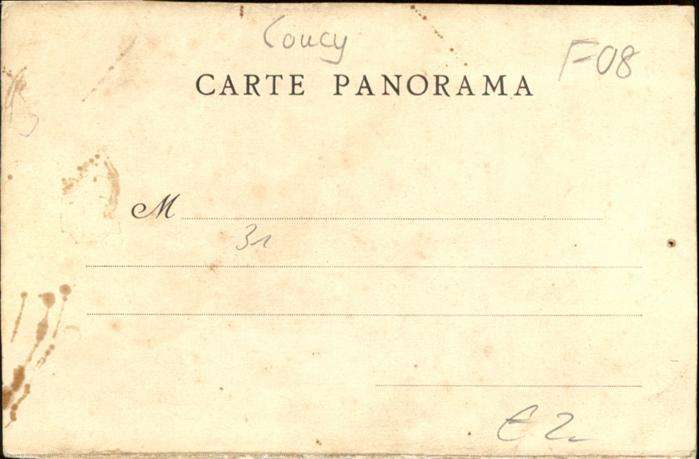 Coucy
F-08
CARTE PANORAMA
M
31
€ 2